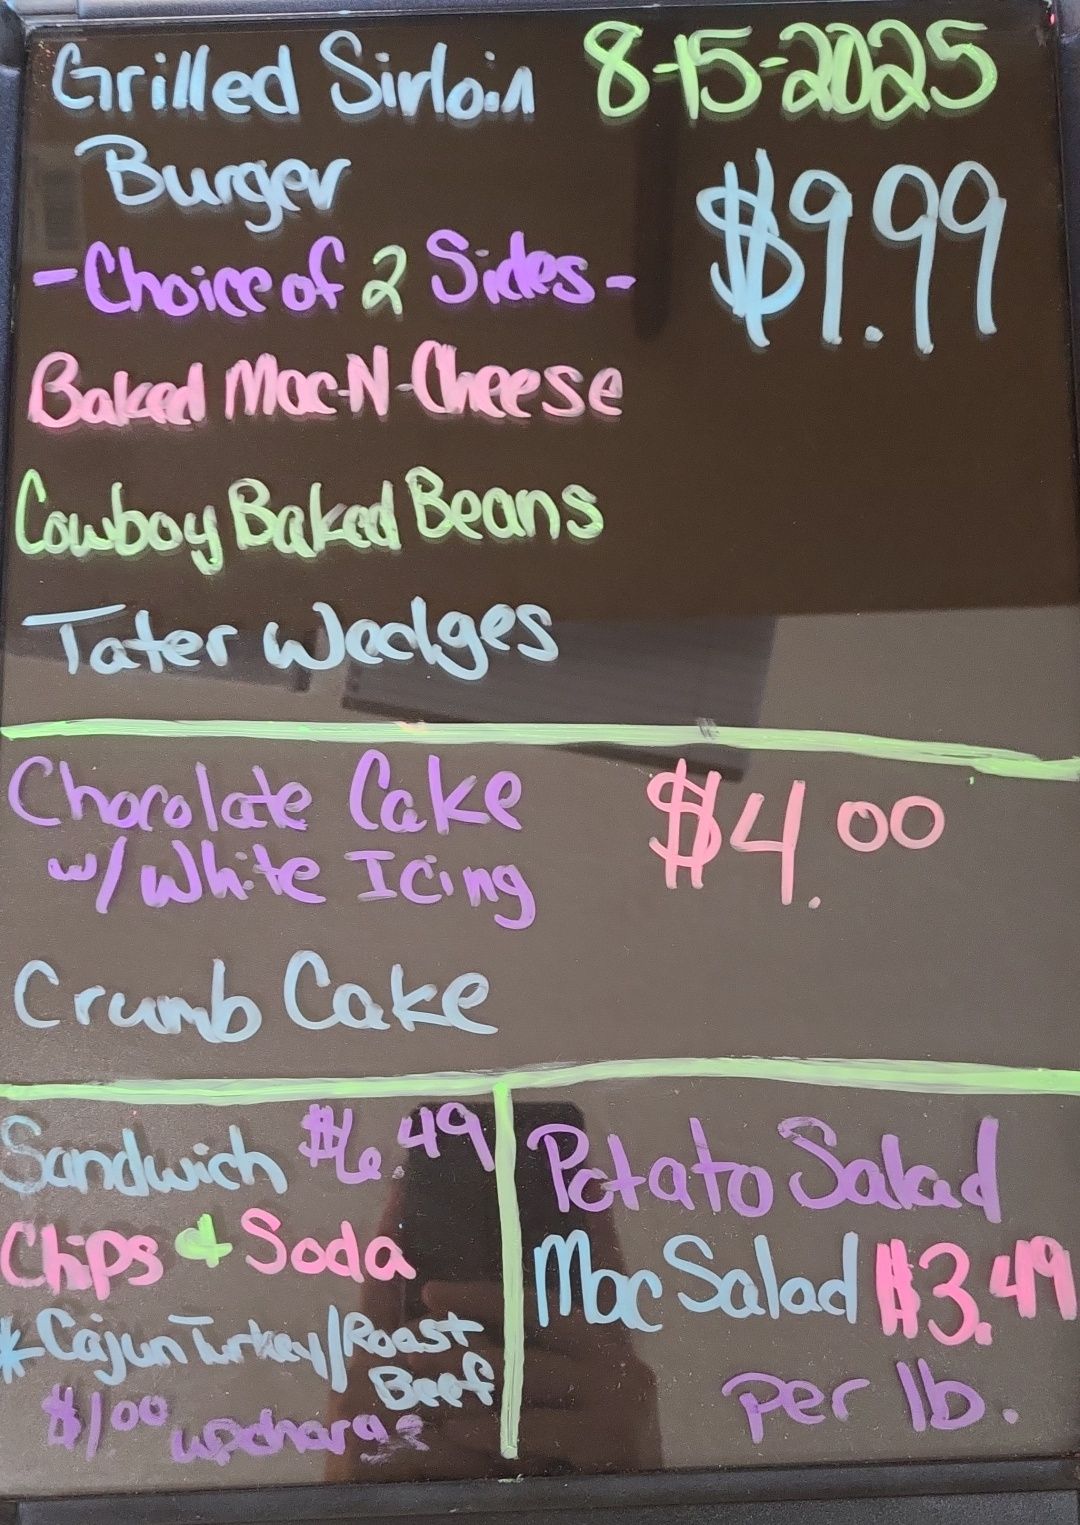 Grilled Sirloin 8-15-2025
Burger $9.99
-Choice of 2 Sides-
Baked Mac-N-Cheese
Cowboy Baked Beans
Tater Wedges
Chocolate Cake $4.00
w/ White Icing
Crumb Cake
Sandwich $6.49
Chips & Soda
*Cajun Turkey/Roast
Beef
$1.00 upcharge
Potato Salad
Mac Salad $3.49
per lb.